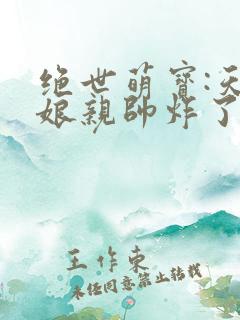 绝世萌宝:天
娘亲帅炸了
王作东
未经同意禁止转载